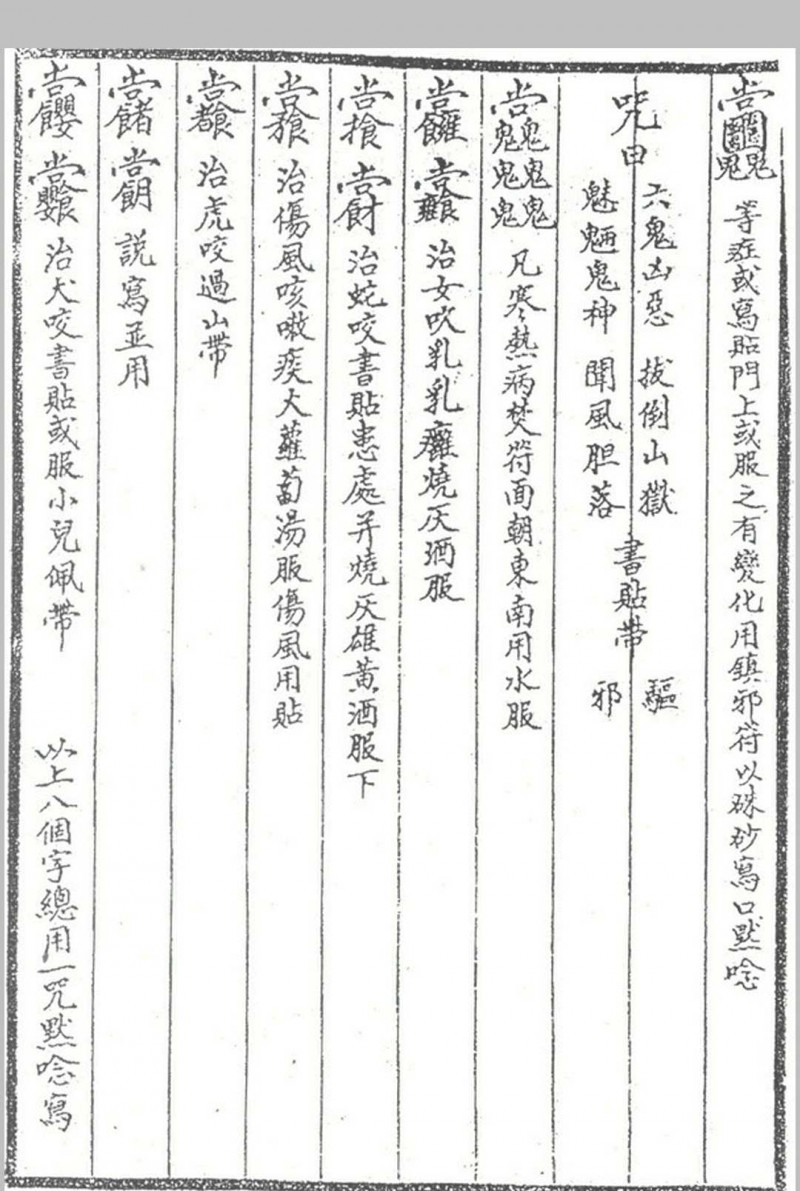 等症或寫貼門上或服之有變化用鎮邪符以硃砂寫口默唸
咒曰
六鬼凶惡 拔倒山獄
魅魎鬼神 聞風胆落
書貼帶
驅邪
凡寒熱病焚符面朝東南用水服
治女吹乳乳癰燒灰酒服
治蛇咬書貼患處并燒灰雄黃酒服下
治傷風咳嗽痰大蘿蔔湯服傷風用貼
治虎咬過山帶
說寫並用
治犬咬書貼或服小兒佩帶 以上八個字總用一咒默唸寫